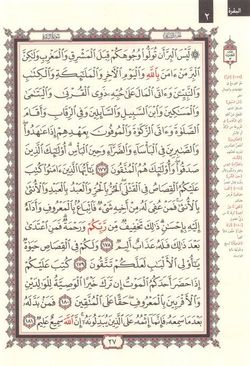 البقرة
٢
۞ لَّيْسَ ٱلْبِرَّ أَن تُوَلُّوا۟ وُجُوهَكُمْ قِبَلَ ٱلْمَشْرِقِ وَٱلْمَغْرِبِ وَلَٰكِنَّ
ٱلْبِرَّ مَنْ ءَامَنَ بِٱللَّهِ وَٱلْيَوْمِ ٱلْءَاخِرِ وَٱلْمَلَٰٓئِكَةِ وَٱلْكِتَٰبِ
وَٱلنَّبِيِّۦنَ وَءَاتَى ٱلْمَالَ عَلَىٰ حُبِّهِۦ ذَوِى ٱلْقُرْبَىٰ وَٱلْيَتَٰمَىٰ
وَٱلْمَسَٰكِينَ وَٱبْنَ ٱلسَّبِيلِ وَٱلسَّآئِلِينَ وَفِى ٱلرِّقَابِ وَأَقَامَ
ٱلصَّلَوٰةَ وَءَاتَى ٱلزَّكَوٰةَ وَٱلْمُوفُونَ بِعَهْدِهِمْ إِذَا عَٰهَدُوا۟
وَٱلصَّٰبِرِينَ فِى ٱلْبَأْسَآءِ وَٱلضَّرَّآءِ وَحِينَ ٱلْبَأْسِ أُو۟لَٰٓئِكَ ٱلَّذِينَ
صَدَقُوا۟ وَأُو۟لَٰٓئِكَ هُمُ ٱلْمُتَّقُونَ ١٧٧ يَٰٓأَيُّهَا ٱلَّذِينَ ءَامَنُوا۟ كُتِبَ
عَلَيْكُمُ ٱلْقِصَاصُ فِى ٱلْقَتْلَى ٱلْحُرُّ بِٱلْحُرِّ وَٱلْعَبْدُ بِٱلْعَبْدِ وَٱلْأُنثَىٰ
بِٱلْأُنثَىٰ فَمَنْ عُفِىَ لَهُۥ مِنْ أَخِيهِ شَىْءٌ فَٱتِّبَاعٌۢ بِٱلْمَعْرُوفِ وَأَدَآءٌ
إِلَيْهِ بِإِحْسَٰنٍ ذَٰلِكَ تَخْفِيفٌ مِّن رَّبِّكُمْ وَرَحْمَةٌ فَمَنِ ٱعْتَدَىٰ
بَعْدَ ذَٰلِكَ فَلَهُۥ عَذَابٌ أَلِيمٌ ١٧٨ وَلَكُمْ فِى ٱلْقِصَاصِ حَيَوٰةٌ
يَٰٓأُو۟لِى ٱلْأَلْبَٰبِ لَعَلَّكُمْ تَتَّقُونَ ١٧٩ كُتِبَ عَلَيْكُمْ
إِذَا حَضَرَ أَحَدَكُمُ ٱلْمَوْتُ إِن تَرَكَ خَيْرًا ٱلْوَصِيَّةُ لِلْوَٰلِدَيْنِ
وَٱلْأَقْرَبِينَ بِٱلْمَعْرُوفِ حَقًّا عَلَى ٱلْمُتَّقِينَ ١٨٠ فَمَنۢ بَدَّلَهُۥ
بَعْدَ مَا سَمِعَهُۥ فَإِنَّمَآ إِثْمُهُۥ عَلَى ٱلَّذِينَ يُبَدِّلُونَهُۥٓ إِنَّ ٱللَّهَ سَمِيعٌ عَلِيمٌ ١٨١
٢٧